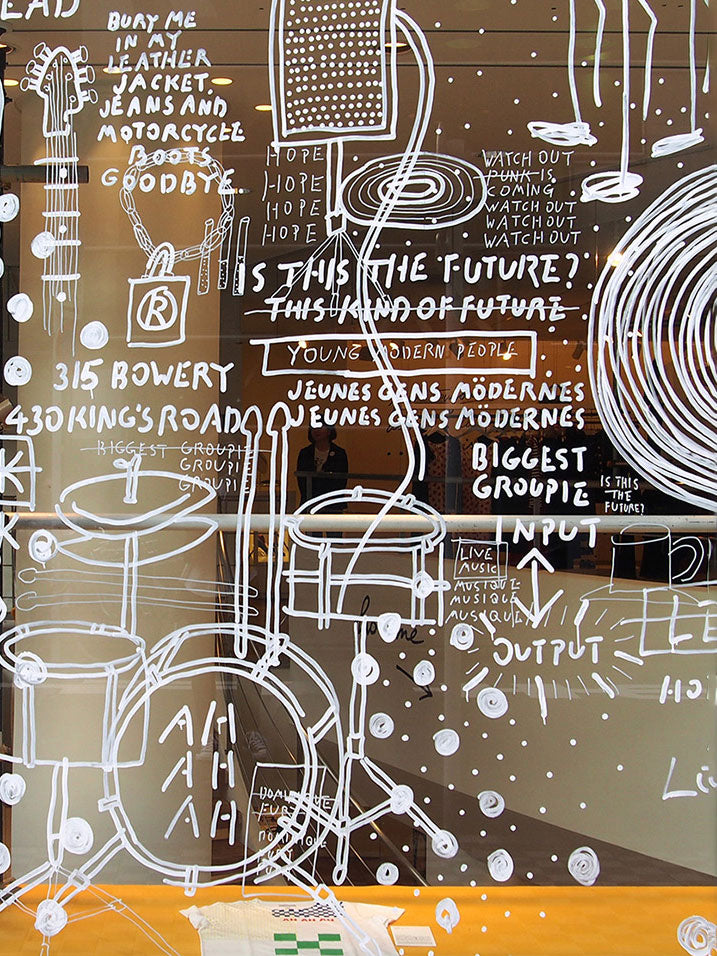 BURY ME
IN MY
LEATHER
JACKET,
JEANS AND
MOTORCYCLE
BOOTS
GOODBYE
HOPE
HOPE
HOPE
HOPE
WATCH OUT
PUNK IS
COMING
WATCH OUT
WATCH OUT
WATCH OUT
®
IS THIS THE FUTURE?
THIS KIND OF FUTURE
YOUNG MODERN PEOPLE
315 BOWERY
430 KING'S ROAD
JEUNES GENS MÖDERNES
JEUNES GENS MÖDERNES
BIGGEST GROUPIE
GROUPIE
GROUPIE
BIGGEST
GROUPIE
IS THIS
THE
FUTURE?
INPUT
LIVE
MUSIC
MUSIQUE
MUSIQUE
MUSIQUE
OUTPUT
AH
AH
AH
DOMINIQUE
FURY
DOMINIQUE
FURY
AH AH AH